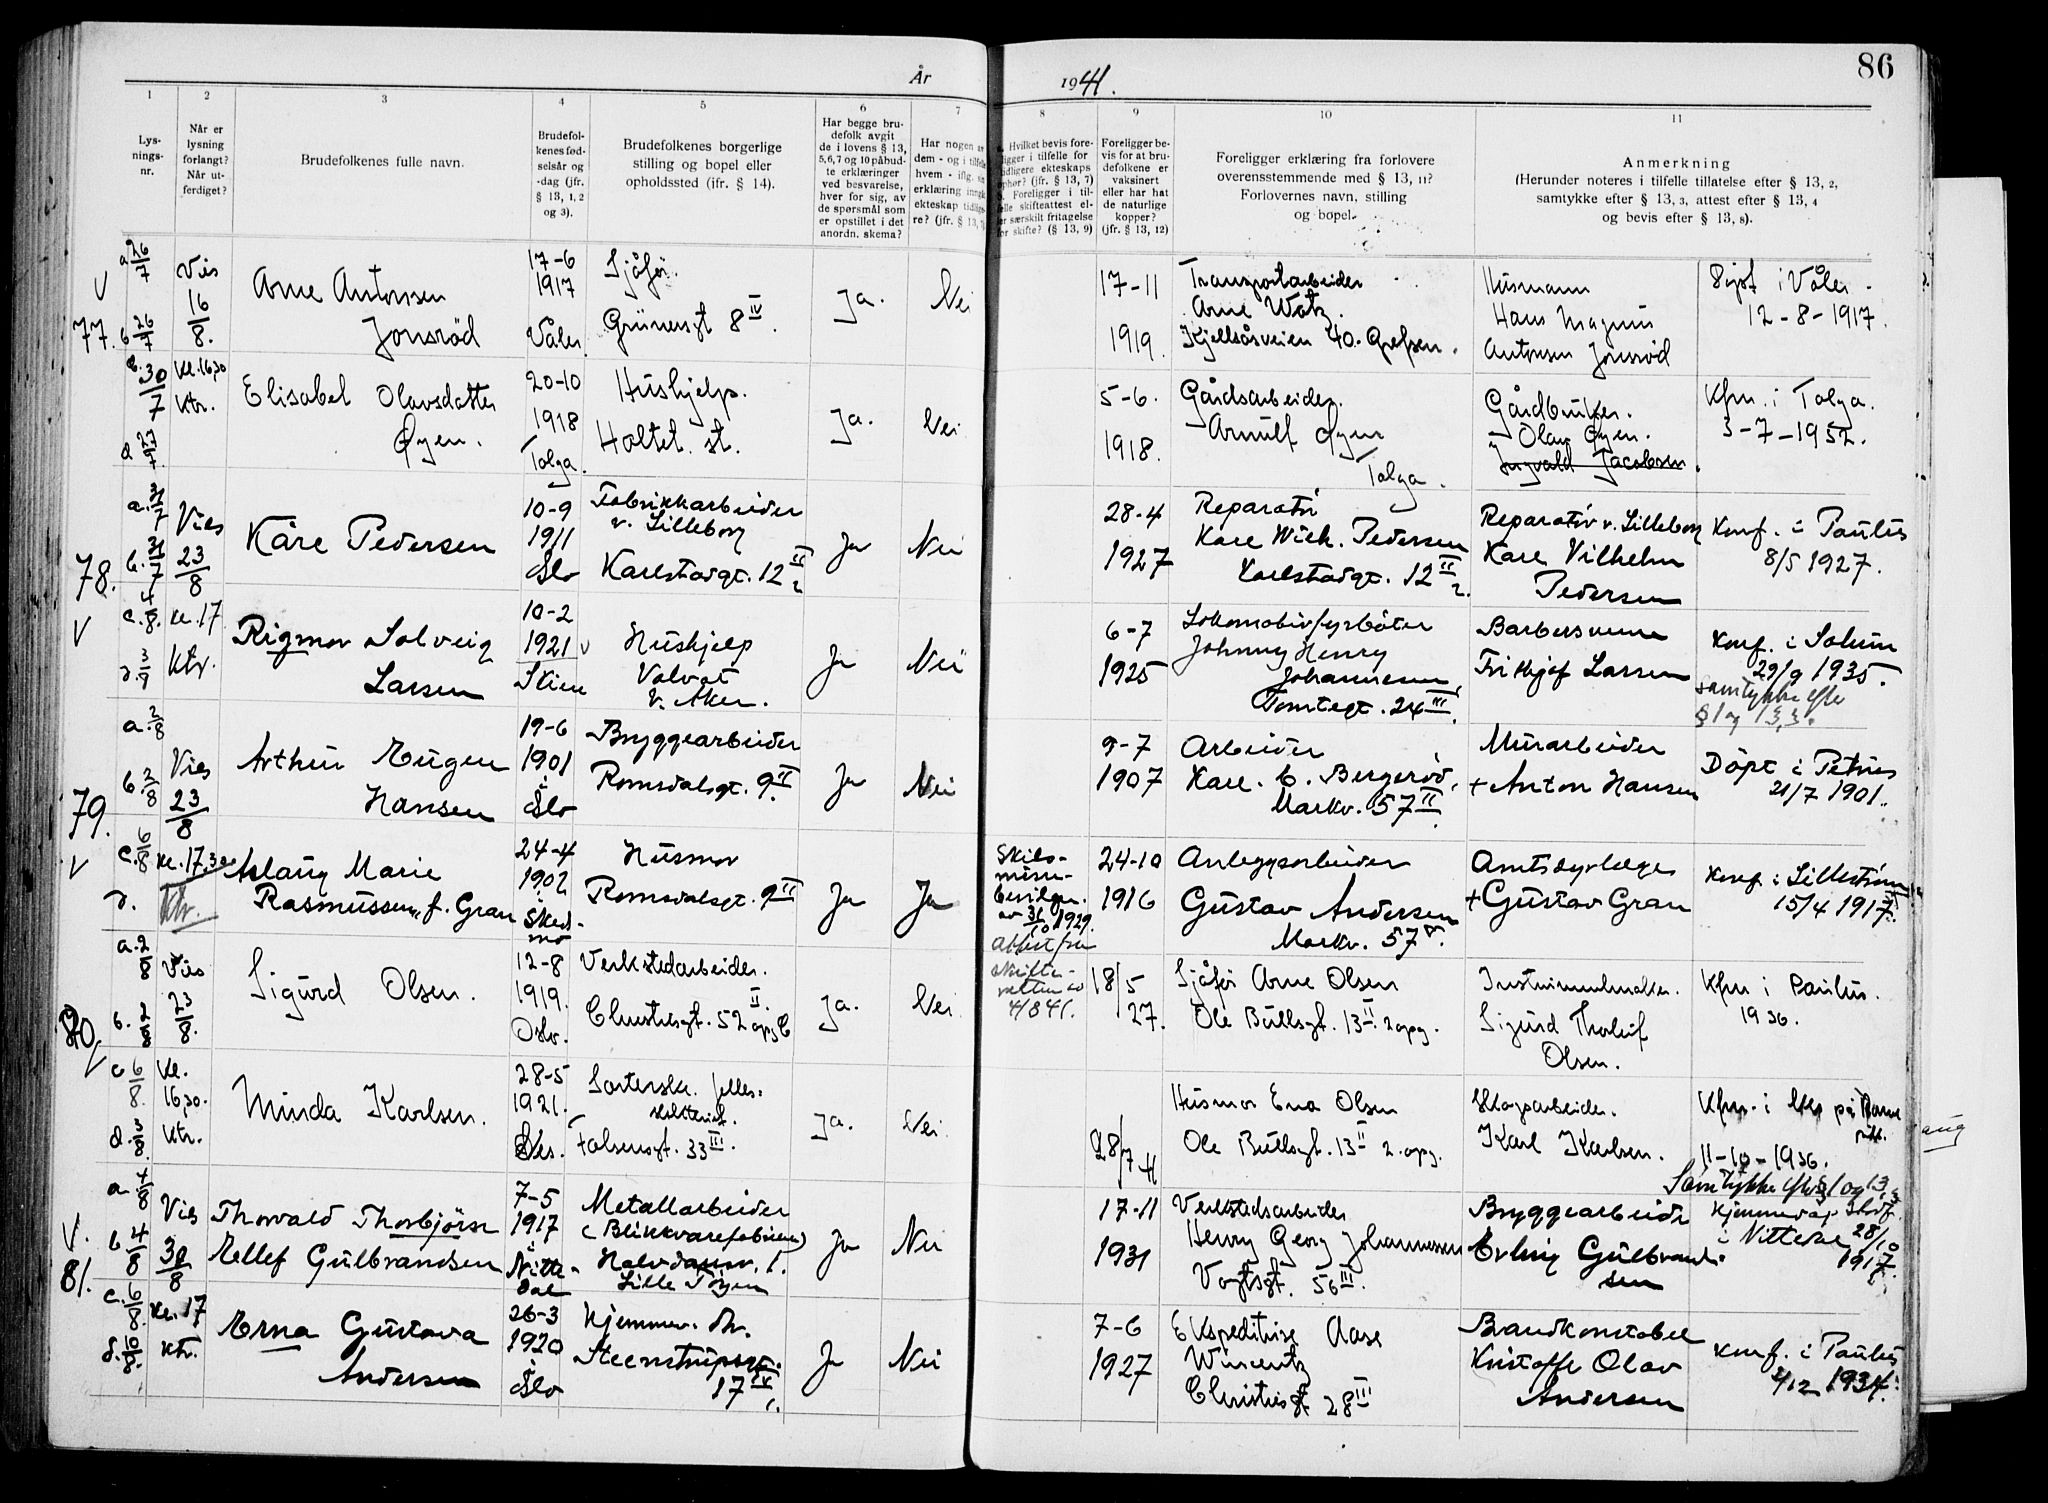 År 1941.
86
1
2
3
4
5
6
7
8
9
10
11
Lys-
nings-
nr.
Når er
lysning
forlangt?
Når ut-
ferdiget?
Brudefolkenes fulle navn.
Brudefol-
kenes fød-
selsår og
-dag (jfr.
§ 13, 1, 2
og 3).
Brudefolkenes borgerlige
stilling og bopel eller
opholdssted (jfr. § 14).
Har begge bru-
defolk avgit
de i lovens § 13,
5, 6, 7 og 10 påbud-
te erklæringer
ved besvarelse,
hver for sig, av
de spørsmål som
er opstillet i det
anordn. skema?
Har nogen av
dem - og i tilfelle
hvem - iflg. sin
erklæring inngåt
ekteskap tidlige-
re? (jfr. § 13,
Hvilket bevis fore-
ligger i tilfelle for
tidligere ekteskaps
ophør? (jfr. § 13, 7)
Foreligger i til-
felle skifteattest el-
ler særskilt fritagelse
for skifte? (§ 13, 9)
Foreligger be-
vis for at bru-
defolkene er
vaksinert
eller har hat
de naturlige
kopper?
(jfr. § 13, 12)
Foreligger erklæring fra forlovere
overensstemmende med § 13, 11?
Forlovernes navn, stilling
og bopel.
Anmerkning
(Herunder noteres i tilfelle tillatelse efter § 13, 2,
samtykke efter § 13, 3, attest efter § 13, 4
og bevis efter § 13, 8).
77.
a 26/7
b 26/7
Vies
16/8.
Arne Antonsen
Jonsrød
17-6
1917
Våler
Sjåfør.
Grünersgt 8 IV.
Ja.
Nei
17-11
1919.
Transportarbeider
Arne Watz
Kjellsåsveien 40. Grefsen.
Husmann
Hans Magnus
Antonsen Jonsrød
Døpt i Våler
12-8-1917.
c. 30/7
d 27/7
Kl. 16,30
Ktr.
Elisabet Olavsdatter
Øyen.
20-10
1918
Tolga.
Hushjelp.
Holtet. st.
Ja.
Nei
5-6.
1918.
Gårdsarbeider.
Arnulf Øyen
Tolga.
Gårdbruker.
Olav Øyen.
Ingvald Jacobsen.
Kfm. i Tolga.
3-7-1932.
78.
a. 31/7
b. 31/7
Vies
23/8
Kåre Pedersen
10-9
1911
Oslo
Fabrikkarbeider
v. Lilleborg
Karlstadgt. 12 II 2
Ja
Nei
28-4
1927
Reparatør
Kåre Wilh. Pedersen
Karlstadgt. 12 II 2.
Reparatør v. Lilleborg
Kåre Vilhelm
Pedersen
Konf. i Paulus
8/5 1927.
V
c. 4/8.
Kl. 17
Ktr.
Rigmor Solveig
Larsen
10-2
1921
Skien
Hushjelp
Volvat
V. Aker.
Ja
Nei
6-7
1925
Lokomotivfyrbøter
Johnny Henry
Johannesen
Tomtegt. 24 III.
Barbersvenn
Frithjof Larsen
Konf. i Solum
29/9 1935.
Samtykke efter
§ 1 og 13,3.
79.
a. 2/8
b. 2/8
Vies
23/8
Arthur Eugen
Hansen
19-6
1901
Oslo
Bryggearbeider
Romsdalsgt. 9 II
Ja
Nei
9-7
1907
Arbeider
Kåre. C. Bergerød,
Markv. 57 II.
Murarbeider
+ Anton Hansen
Døpt i Petrus
21/7 1901.
V
c. 6/8
d.
Kl. 17.30
Ktr.
Aslaug Marie
Rasmussen, f. Gran
24-4
1902
Sked-
mo
Husmor
Romsdalsgt. 9 II
Ja
Ja
Skils-
misse-
bevilgn.
av 31/10 1929.
attest fra
skifte-
retten av
4/8 41.
24-10
1916
Anleggsarbeider
Gustav Andersen
Markv. 57 V.
Amtsdyrlæge
+ Gustav Gran
Konf i Lillestrøm
15/4 1917.
80.
a. 2/8
b. 2/8
Vies
23/8.
Sigurd Olsen.
12-8
1919.
Oslo.
Verkstedarbeider.
Christiesgt. 52 II oppg C
Ja.
Nei
18/5
27.
Sjåfør Arne Olsen
Ole Bullsgt. 13 II 2 oppg.
Instrumentmaker.
Sigurd Tholuf
Olsen.
Kfm i Paulus.
1936.
c 6/8.
Kl.
16,30.
Ktr.
Minda Karlsen.
28-5
1921.
Falsensgt. 33 III.
Ja.
Nei
28/7 41
Husmor Ena Olsen
Ole Bullsgt. 13 II 2. oppg.
Karl Karlsen.
11-10-1936.
Samtykke efter § 1 og 13,3
V.
81.
a 4/8
b 4/8
Vies
30/8
Thorvald Thorbjørn
Ellef Gulbrandsen
7-5
1917
i
Nitte-
dal
Metallarbeider
(Blikkvarefabrikken)
Halvdansv. 1.
Lille Tøyen
Ja
Nei
17-11
1931
Verkstedsarbeider
Henry Georg Johannessen
Vogtsgt. 56 III.
Bryggearbeider
Erling Gulbrand-
sen
i Nittedal 28/10
1917.
c. 6/8.
d. 10/8.
Kl. 17
Ktr.
Erna Gustava
Andersen
26-3
1920
i
Oslo
Hjemmev. dtr.
Steenstrupsgt.
17 IV
Ja
Nei
7-6
1927
Ekspeditrise Aase
Wincentz
Christiesgt 28 III
Brandkonstabel
Kristoffer Olav
Andersen
Konf. i Paulus
2/12 1934.